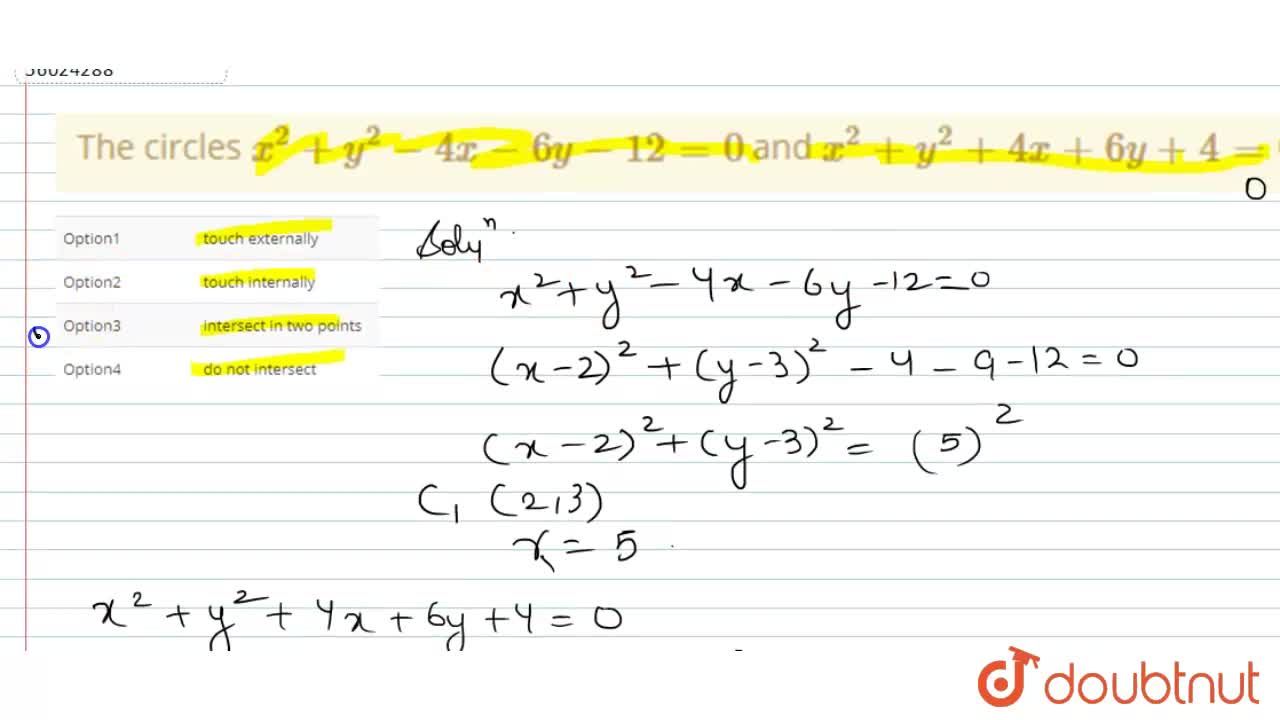 56024288
The circles x² + y² − 4x − 6y − 12 = 0 and x² + y² + 4x + 6y + 4 =
0
Option1 touch externally
Option2 touch internally
Option3 intersect in two points
Option4 do not intersect
Solyⁿ.
x² + y² − 4x − 6y − 12 = 0
(x − 2)² + (y − 3)² − 4 − 9 − 12 = 0
(x − 2)² + (y − 3)² = (5)²
C₁ (2,3)
r₁ = 5
x² + y² + 4x + 6y + 4 = 0
doubtnut